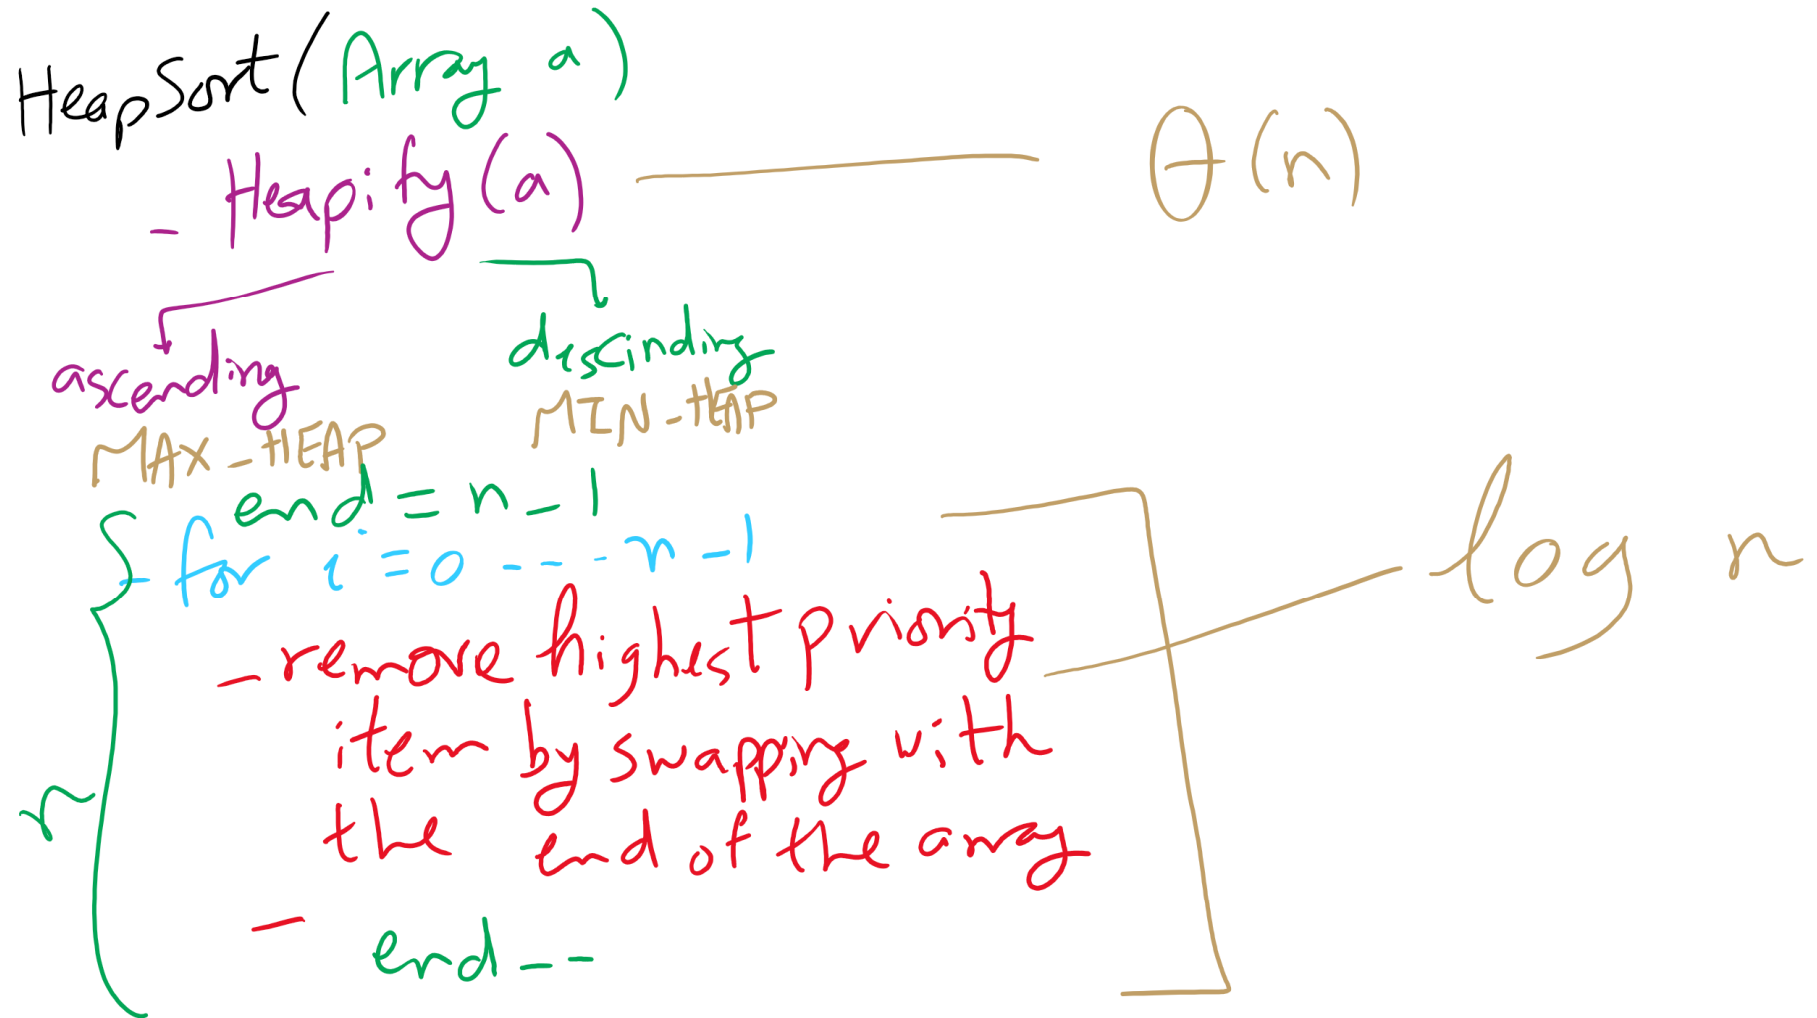 HeapSort(Array a)
- Heapify(a) θ(n)
ascending descinding
MAX_HEAP MIN_HEAP
end = n-1
- for i=0 ---- n-1
log n
- remove highest priority
item by swapping with
n
the end of the array
- end--